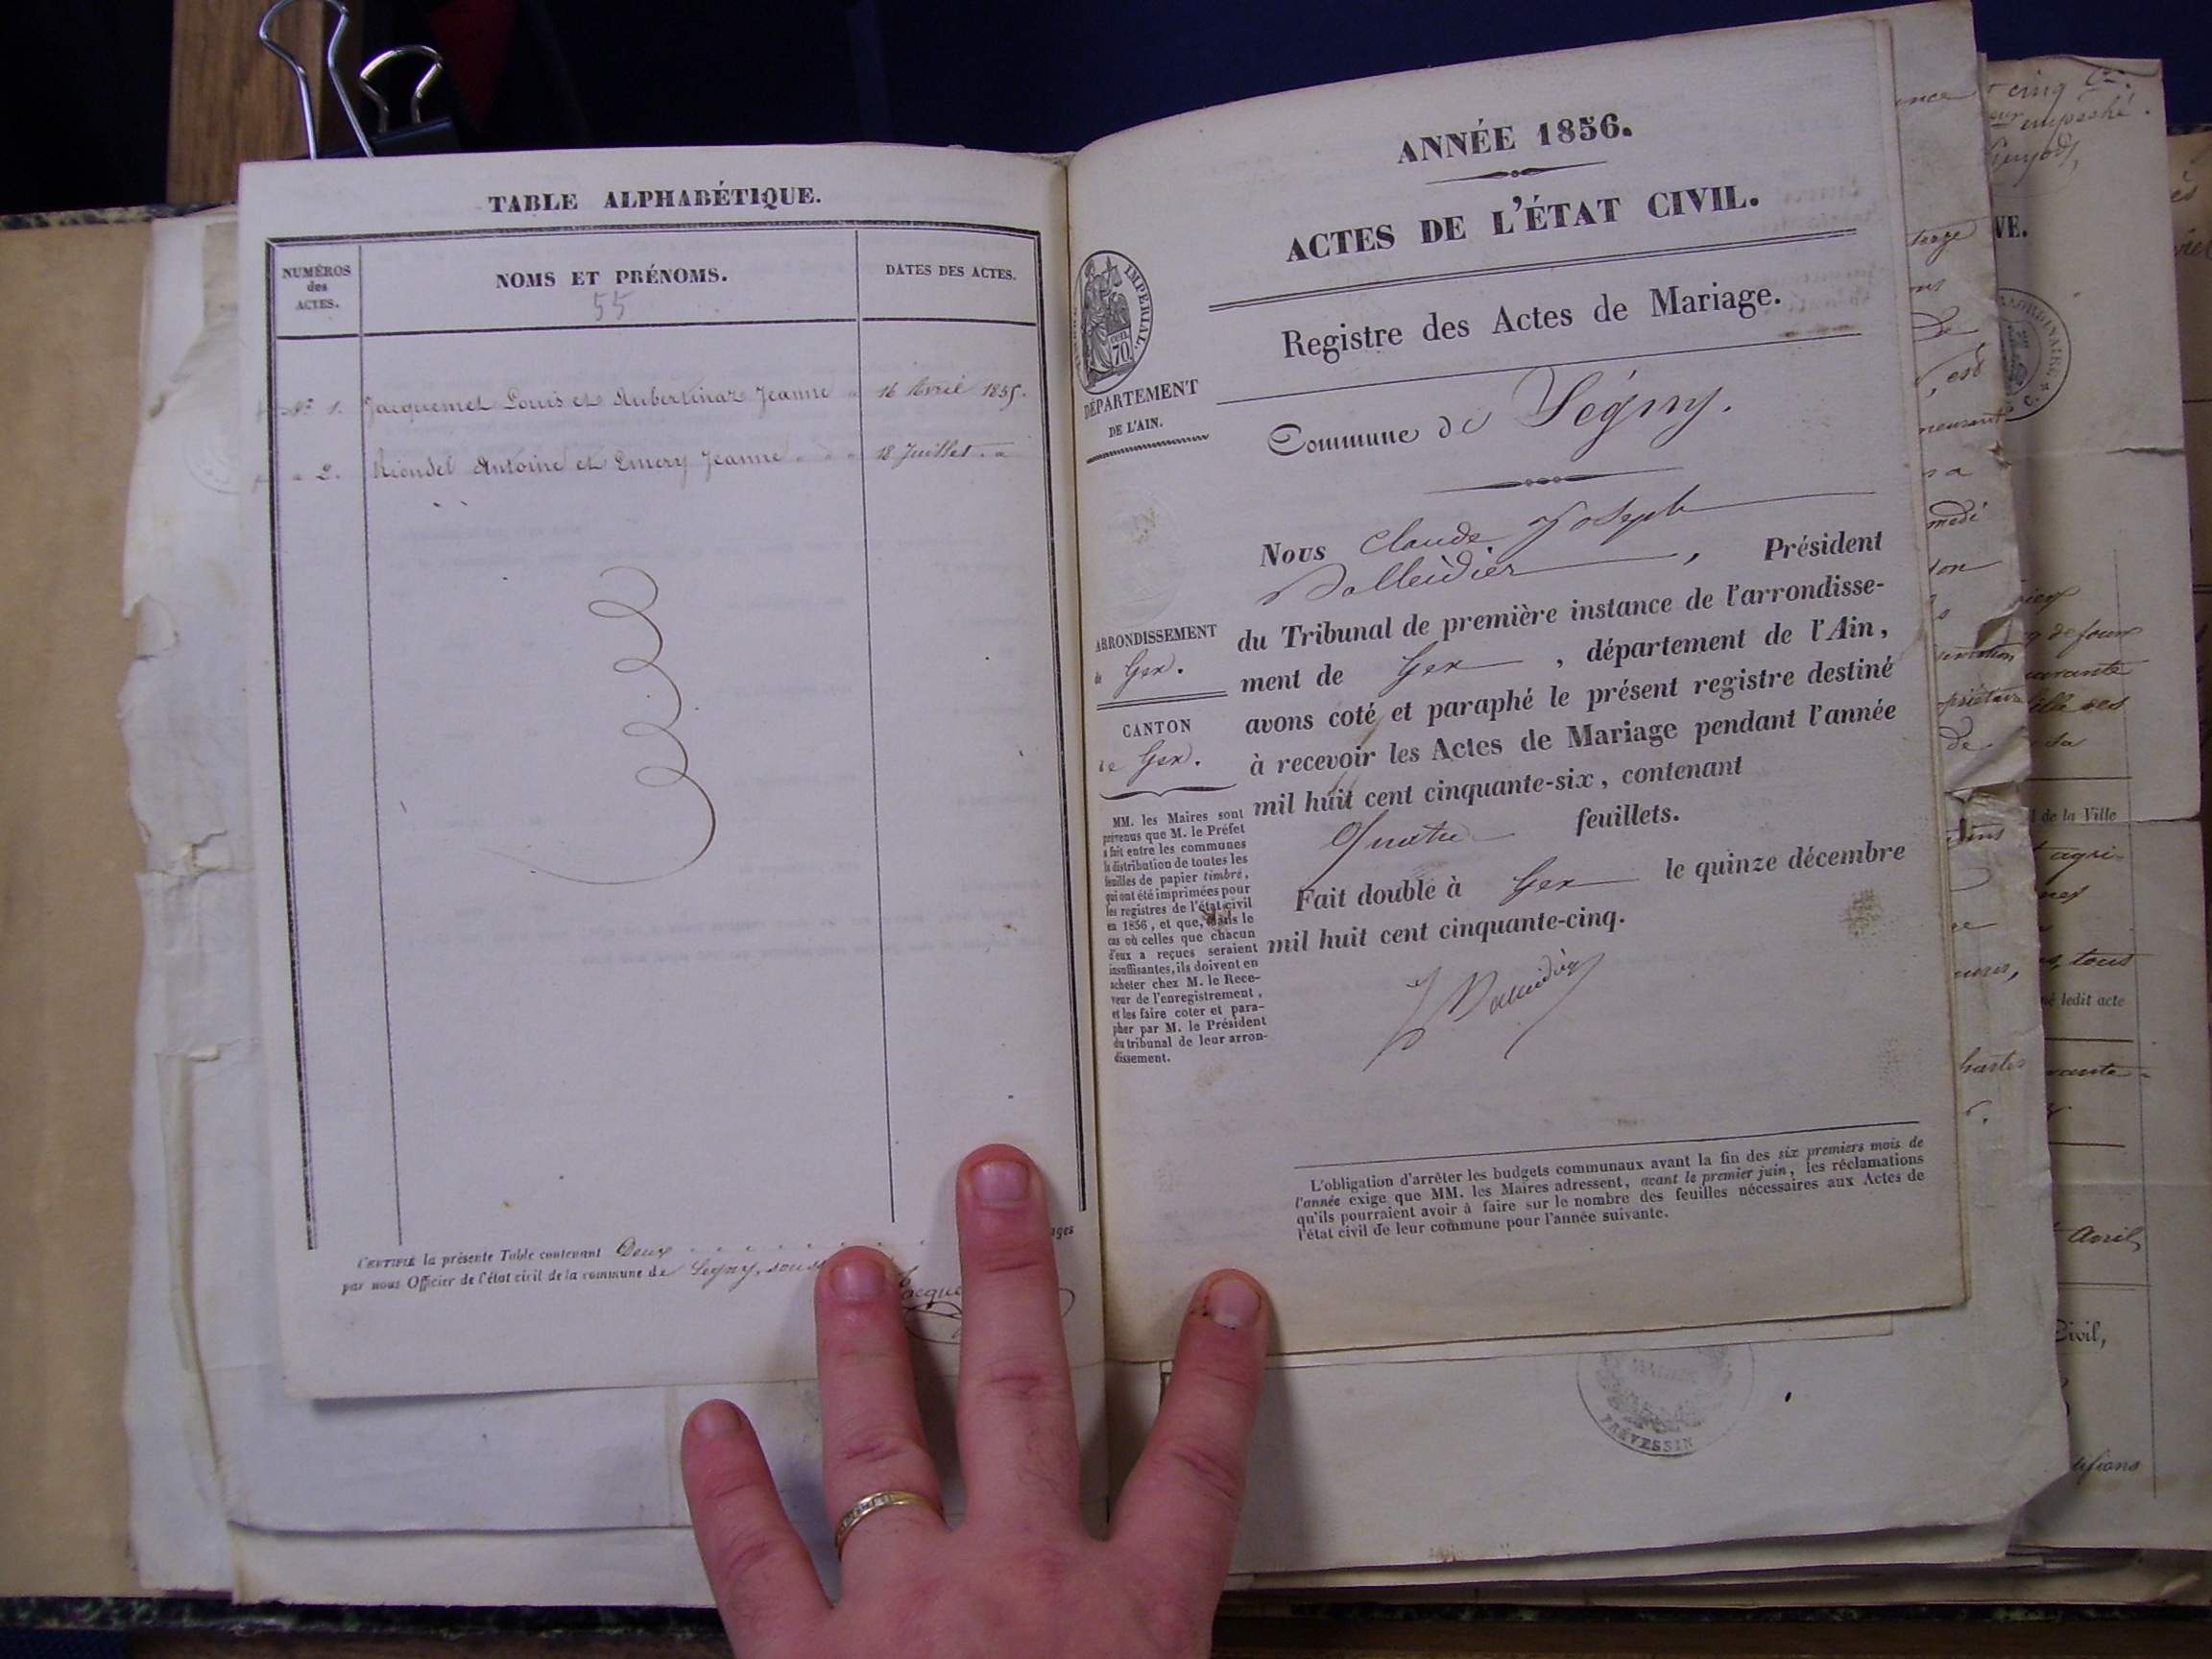 TABLE ALPHABÉTIQUE.
NUMÉROS
des
ACTES.
NOMS ET PRÉNOMS.
55
DATES DES ACTES.
Nº 1. Jacquemet Louis et Aubertinaz Jeanne " 16 Avril 1855.
" 2. Riondel Antoine et Emery Jeanne " " " 18 Juillet. "
CERTIFIÉ la présente Table contenant Deux
par nous Officier de l'état civil de la commune de Segny,
ANNÉE 1856.
ACTES DE L'ÉTAT CIVIL.
Registre des Actes de Mariage.
IMPÉRIAL.
70
DÉPARTEMENT
DE L'AIN.
Commune de Ségny.
Nous Claude Joseph
, Président
du Tribunal de première instance de l'arrondisse-
ment de Gex , département de l'Ain,
avons coté et paraphé le présent registre destiné
à recevoir les Actes de Mariage pendant l'année
mil huit cent cinquante-six, contenant
Quatre feuillets.
Fait double à Gex le quinze décembre
mil huit cent cinquante-cinq.
ARRONDISSEMENT
de Gex.
CANTON
de Gex.
MM. les Maires sont
prévenus que M. le Préfet
a fait entre les communes
la distribution de toutes les
feuilles de papier timbré,
qui ont été imprimées pour
les registres de l'état civil
en 1856, et que, dans le
cas où celles que chacun
d'eux a reçues seraient
insuffisantes, ils doivent en
acheter chez M. le Rece-
veur de l'enregistrement,
et les faire coter et para-
pher par M. le Président
du tribunal de leur arron-
dissement.
L'obligation d'arrêter les budgets communaux avant la fin des six premiers mois de
l'année exige que MM. les Maires adressent, avant le premier juin, les réclamations
qu'ils pourraient avoir à faire sur le nombre des feuilles nécessaires aux Actes de
l'état civil de leur commune pour l'année suivante.
PRÉVESSIN
cinq
empeché.
de la Ville
agri-
tous
ledit acte
Avril
Civil,